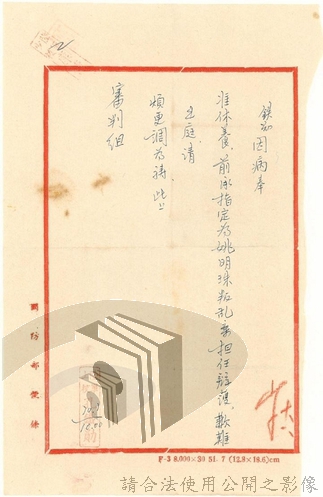 因病奉
准休養，前承指定為姚明珠叛亂案担任辯護，歉難
上庭，請
煩更調為禱，此上
審判組
國防部便條
F-3 8,000×30 51. 7 (12.8×18.6)cm
請合法使用公開之影像